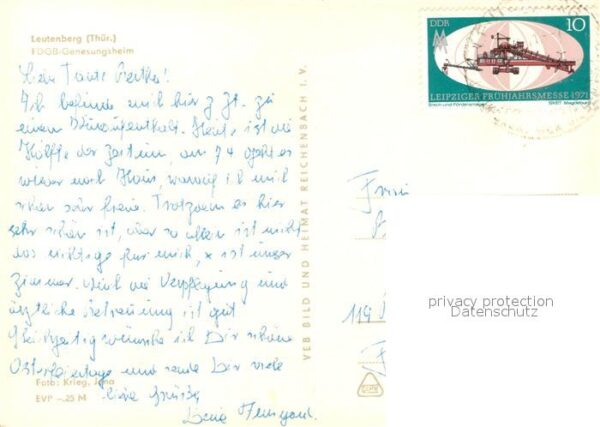 Leutenberg (Thür.)
FDGB-Genesungsheim
Liebe Tante Bertha!
Ich befinde mich hier z. Zt. zu
einem Kuraufenthalt. Heute ist die
Hälfte der Zeit um, am 7.4 geht es
wieder nach Haus, worauf ich mich
schon sehr freue. Trotzdem es hier
sehr schön ist, aber so allein ist nicht
das richtige für mich, ist unser
Zimmer. Auch die Verpflegung und
ärztliche Betreuung ist gut
Gleichzeitig wünsche ich Dir schöne
Osterfeiertage und sende Dir viele
liebe Grüße
Deine Irmgard.
Foto: Krieg, Jena
EVP –.25 M
VEB BILD UND HEIMAT REICHENBACH I. V.
DDR
10
LEIPZIGER FRÜHJAHRSMESSE 1971
SKET Magdeburg
114
privacy protection
Datenschutz